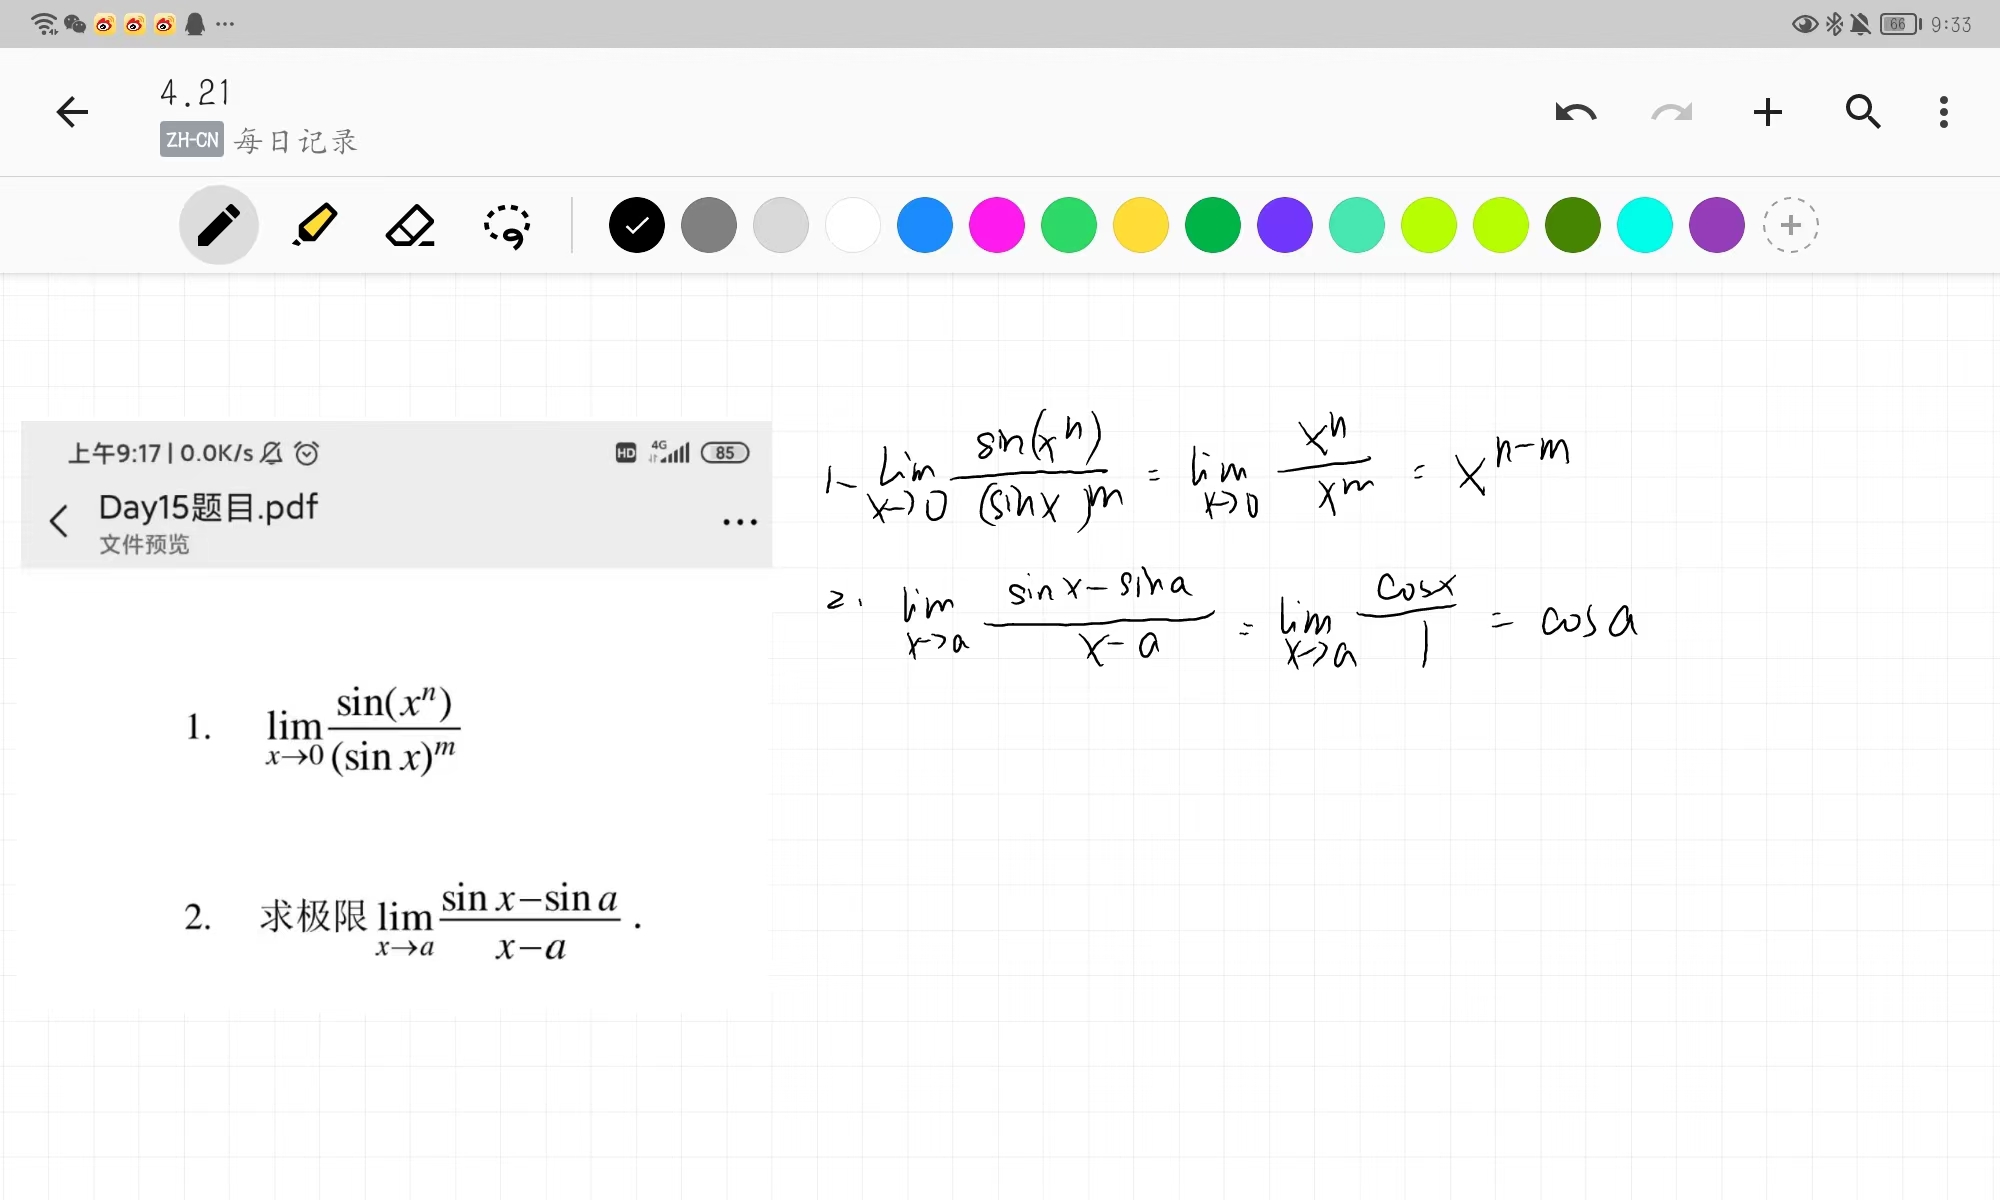 66 9:33
4.21
ZH-CN 每日记录
上午9:17 | 0.0K/s HD 4G 85
Day15题目.pdf
文件预览
1. lim x→0 sin(xⁿ) / (sin x)ᵐ
2. 求极限 lim x→a (sin x−sin a) / (x−a) .
1. lim x→0 sin(xⁿ) / (sinx)ᵐ = lim x→0 xⁿ / xᵐ = xⁿ⁻ᵐ
2. lim x→a (sinx−sina) / (x−a) = lim x→a cosx / 1 = cosa